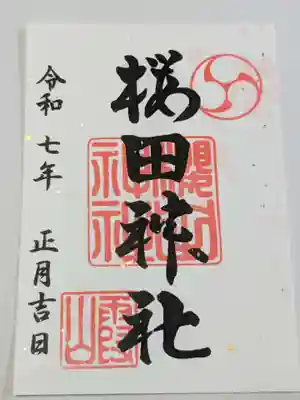 桜田神社
令和七年 正月吉日
霞山